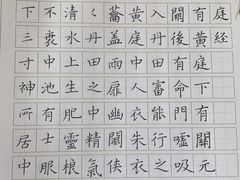 庭經
有黃庭下有關元
關後有命門噓吸
入丹田審能行之
黃庭中人衣朱衣
蓋兩扉幽闕俠
く丹田之中精氣
清水上生肥靈根
不衰中池有士服
下三寸神所居中